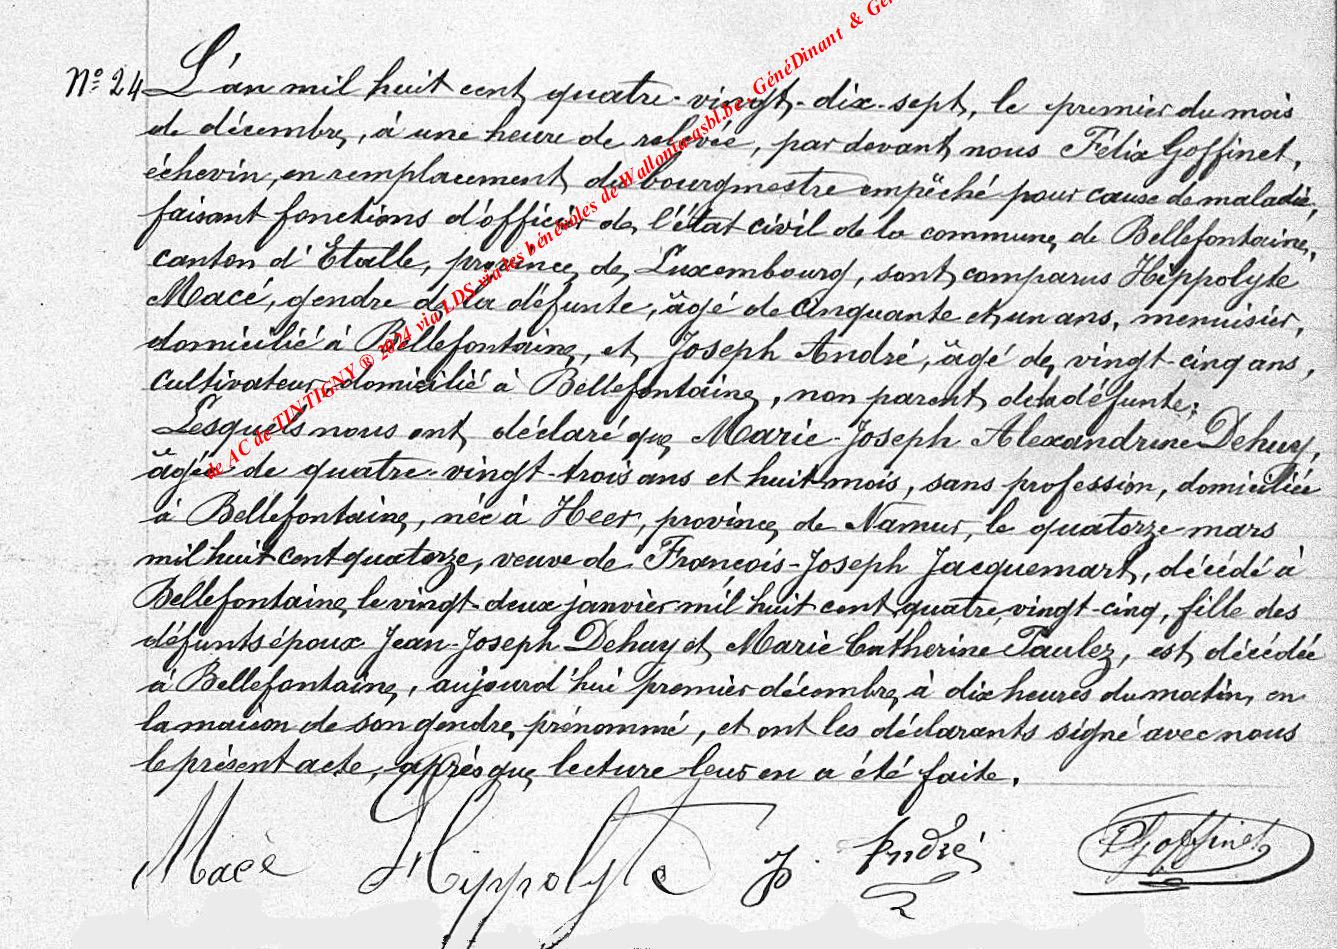 Nº 24 L'an mil huit cent quatre-vingt-dix-sept, le premier du mois
de décembre, à une heure de relevée, par devant nous Félix Goffinet,
échevin, en remplacement du bourgmestre empêché pour cause de maladie,
faisant fonctions d'officier de l'état civil de la commune de Bellefontaine,
canton d'Etalle, province de Luxembourg, sont comparus Hippolyte
Macé, gendre de la défunte, âgé de cinquante et un ans, menuisier,
domicilié à Bellefontaine, et Joseph André, âgé de vingt-cinq ans,
cultivateur domicilié à Bellefontaine, non parent de la défunte;
Lesquels nous ont déclaré que Marie-Joseph Alexandrine Dehuy,
âgée de quatre-vingt-trois ans et huit mois, sans profession, domiciliée
à Bellefontaine, née à Heer, province de Namur, le quatorze mars
mil huit cent quatorze, veuve de François-Joseph Jacquemart, décédé à
Bellefontaine le vingt-deux janvier mil huit cent quatre vingt-cinq, fille des
défunts époux Jean-Joseph Dehuy et Marie Catherine Paulez, est décédée
à Bellefontaine, aujourd'hui premier décembre à dix heures du matin, en
la maison de son gendre prénommé, et ont les déclarants signé avec nous
le présent acte, après que lecture leur en a été faite.
Macè Hippolyte J. André Goffinet
de AC de TINTIGNY ® 2024 via LDS via les bénévoles de Wallonia-asbl.be, GénéDinant & Gé